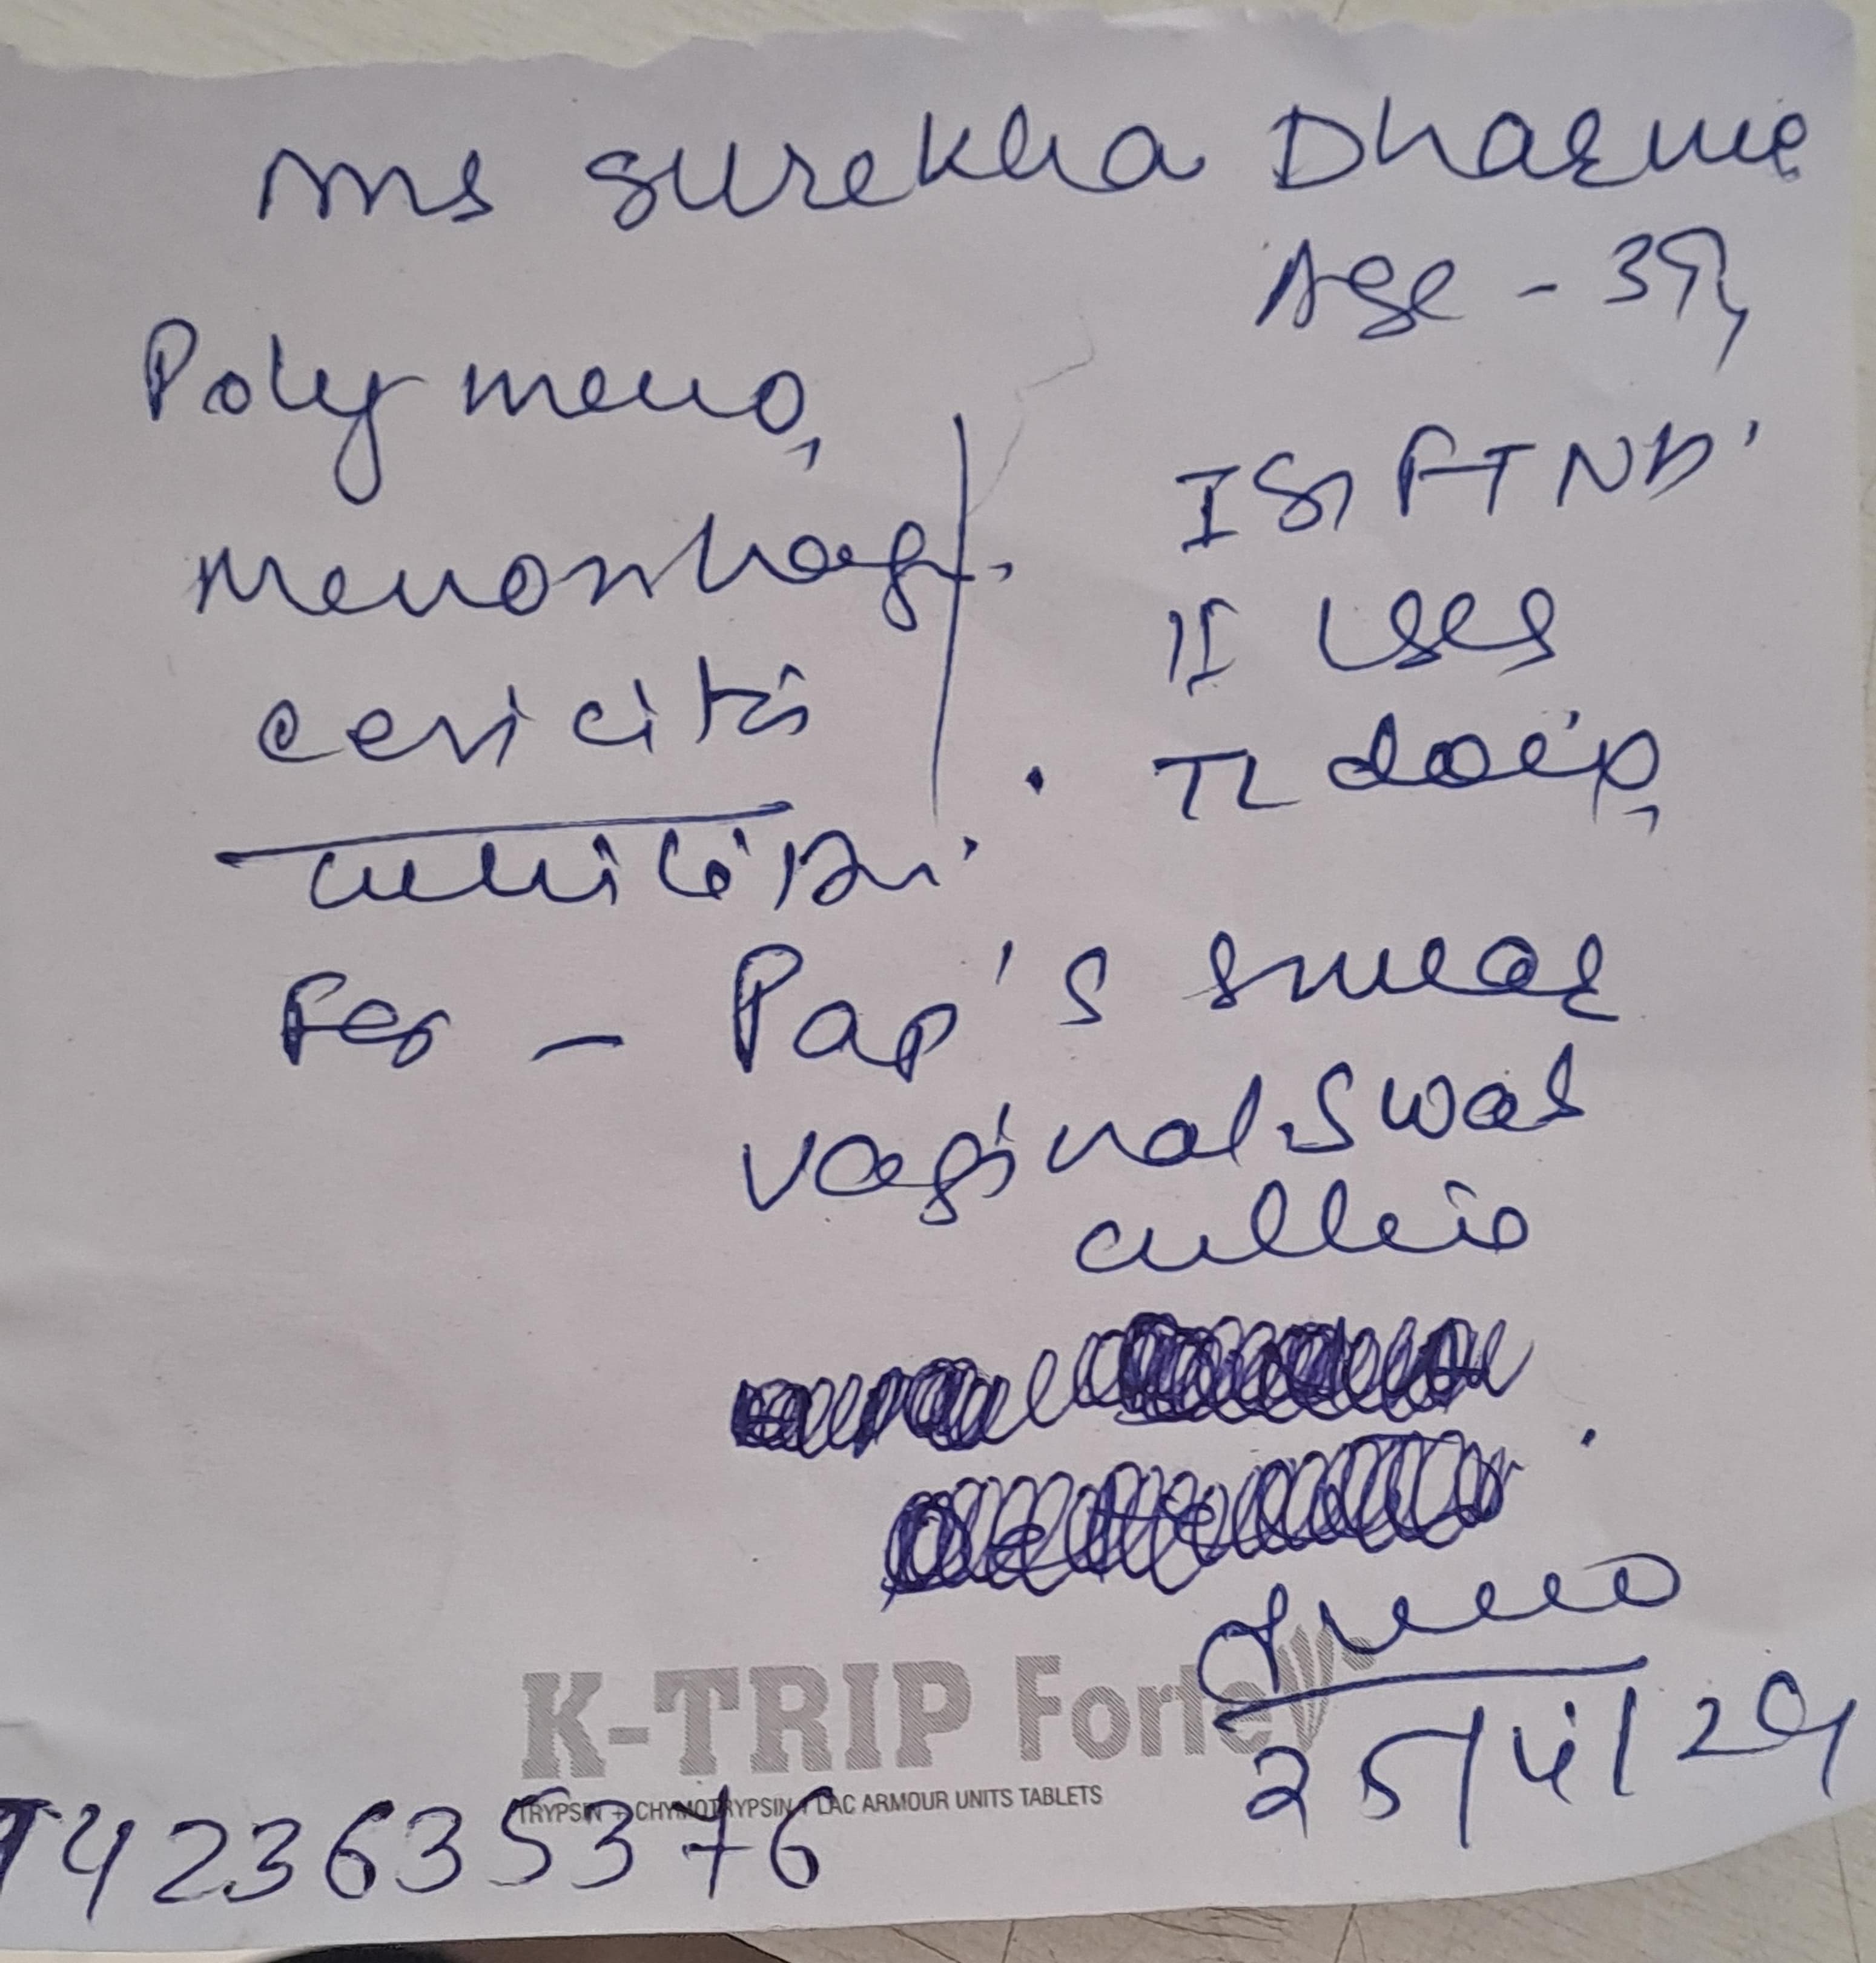 Ms Surekha Dharme
Age - 39,
Polymeno,
Menorrhag.
cervicitis
white PV.
I St FTND
II LSCS
TL done,
For - Pap's smear
vaginal swab
culture
25/4/24
K-TRIP Forte
TRYPSIN + CHYMOTRYPSIN 1 LAC ARMOUR UNITS TABLETS
7423635376